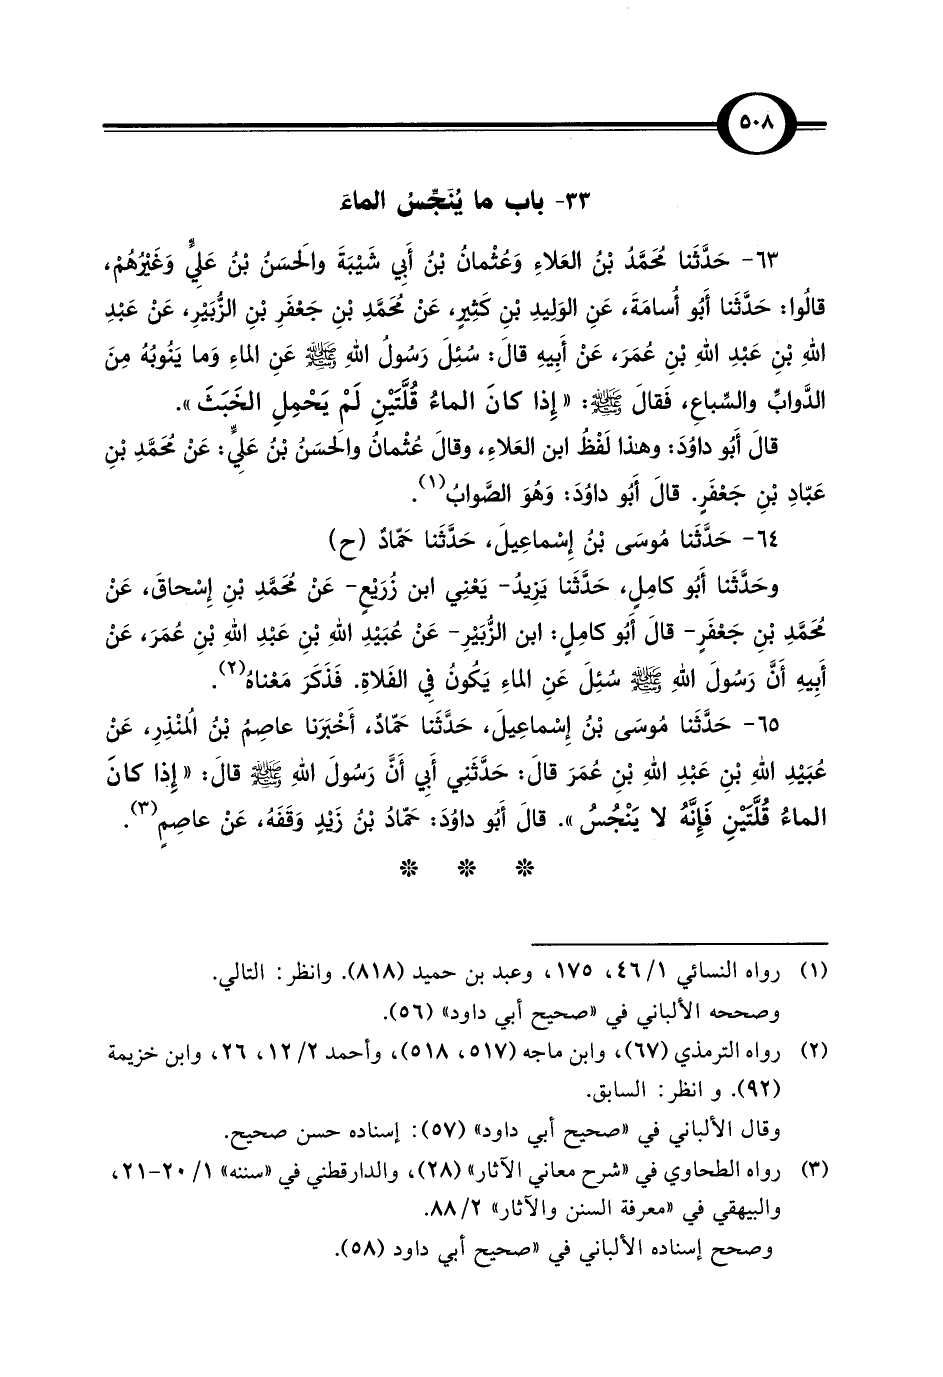 ٥٠٨
٣٣- باب ما يُنَجِّسُ الماءَ
٦٣- حَدَّثَنا مُحَمَّدُ بْنُ العَلاءِ وَعُثْمانُ بْنُ أَبِي شَيْبَةَ والَحسَنُ بْنُ عَليٍّ وَغَيْرُهُمْ،
قالُوا: حَدَّثَنا أَبُو أُسامَةَ، عَنِ الوَلِيدِ بْنِ كَثِيرٍ، عَنْ مُحَمَّدِ بْنِ جَعْفَرِ بْنِ الزُّبَيْرِ، عَنْ عَبْدِ
اللهِ بْنِ عَبْدِ اللهِ بْنِ عُمَرَ، عَنْ أَبِيهِ قالَ: سُئِلَ رَسُولُ اللهِ ﷺ عَنِ الماءِ وَما يَنُوبُهُ مِنَ
الدَّوابِّ والسِّباعِ، فَقالَ ﷺ: « إِذا كانَ الماءُ قُلَّتَيْنِ لَمْ يَحْمِلِ الخَبَثَ ».
قالَ أَبُو داوُدَ: وهذا لَفْظُ ابن العَلاءِ، وقالَ عُثْمانُ والَحسَنُ بْنُ عَليٍّ: عَنْ مُحَمَّدِ بْنِ
عَبّادِ بْنِ جَعْفَرٍ. قالَ أَبُو داوُدَ: وَهُوَ الصَّوابُ(١).
٦٤- حَدَّثَنا مُوسَى بْنُ إِسْماعِيلَ، حَدَّثَنا حَمّادٌ (ح)
وحَدَّثَنا أَبُو كامِلٍ، حَدَّثَنا يَزِيدُ- يَعْنِي ابن زُرَيْعٍ- عَنْ مُحَمَّدِ بْنِ إِسْحاقَ، عَنْ
مُحَمَّدِ بْنِ جَعْفَرٍ- قالَ أَبُو كامِلٍ: ابن الزُّبَيْرِ- عَنْ عُبَيْدِ اللهِ بْنِ عَبْدِ اللهِ بْنِ عُمَرَ، عَنْ
أَبِيهِ أَنَّ رَسُولَ اللهِ ﷺ سُئِلَ عَنِ الماءِ يَكُونُ فِي الفَلاةِ. فَذَكَرَ مَعْناهُ(٢).
٦٥- حَدَّثَنا مُوسَى بْنُ إِسْماعِيلَ، حَدَّثَنا حَمّادٌ، أَخْبَرَنا عاصِمُ بْنُ الُمنْذِرِ، عَنْ
عُبَيْدِ اللهِ بْنِ عَبْدِ اللهِ بْنِ عُمَرَ قالَ: حَدَّثَنِي أَبِي أَنَّ رَسُولَ اللهِ ﷺ قالَ: « إِذا كانَ
الماءُ قُلَّتَيْنِ فَإِنَّهُ لا يَنْجُسُ ». قالَ أَبُو داوُدَ: حَمّادُ بْنُ زَيْدٍ وَقَفَهُ، عَنْ عاصِمٍ(٣).
❊ ❊ ❊
(١) رواه النسائي ١/ ٤٦، ١٧٥، وعبد بن حميد (٨١٨). وانظر: التالي.
وصححه الألباني في «صحيح أبي داود» (٥٦).
(٢) رواه الترمذي (٦٧)، وابن ماجه (٥١٧، ٥١٨)، وأحمد ٢/ ١٢، ٢٦، وابن خزيمة
(٩٢). و انظر: السابق.
وقال الألباني في «صحيح أبي داود» (٥٧): إسناده حسن صحيح.
(٣) رواه الطحاوي في «شرح معاني الآثار» (٢٨)، والدارقطني في «سننه» ١/ ٢٠-٢١،
والبيهقي في «معرفة السنن والآثار» ٢/ ٨٨.
وصحح إسناده الألباني في «صحيح أبي داود (٥٨).